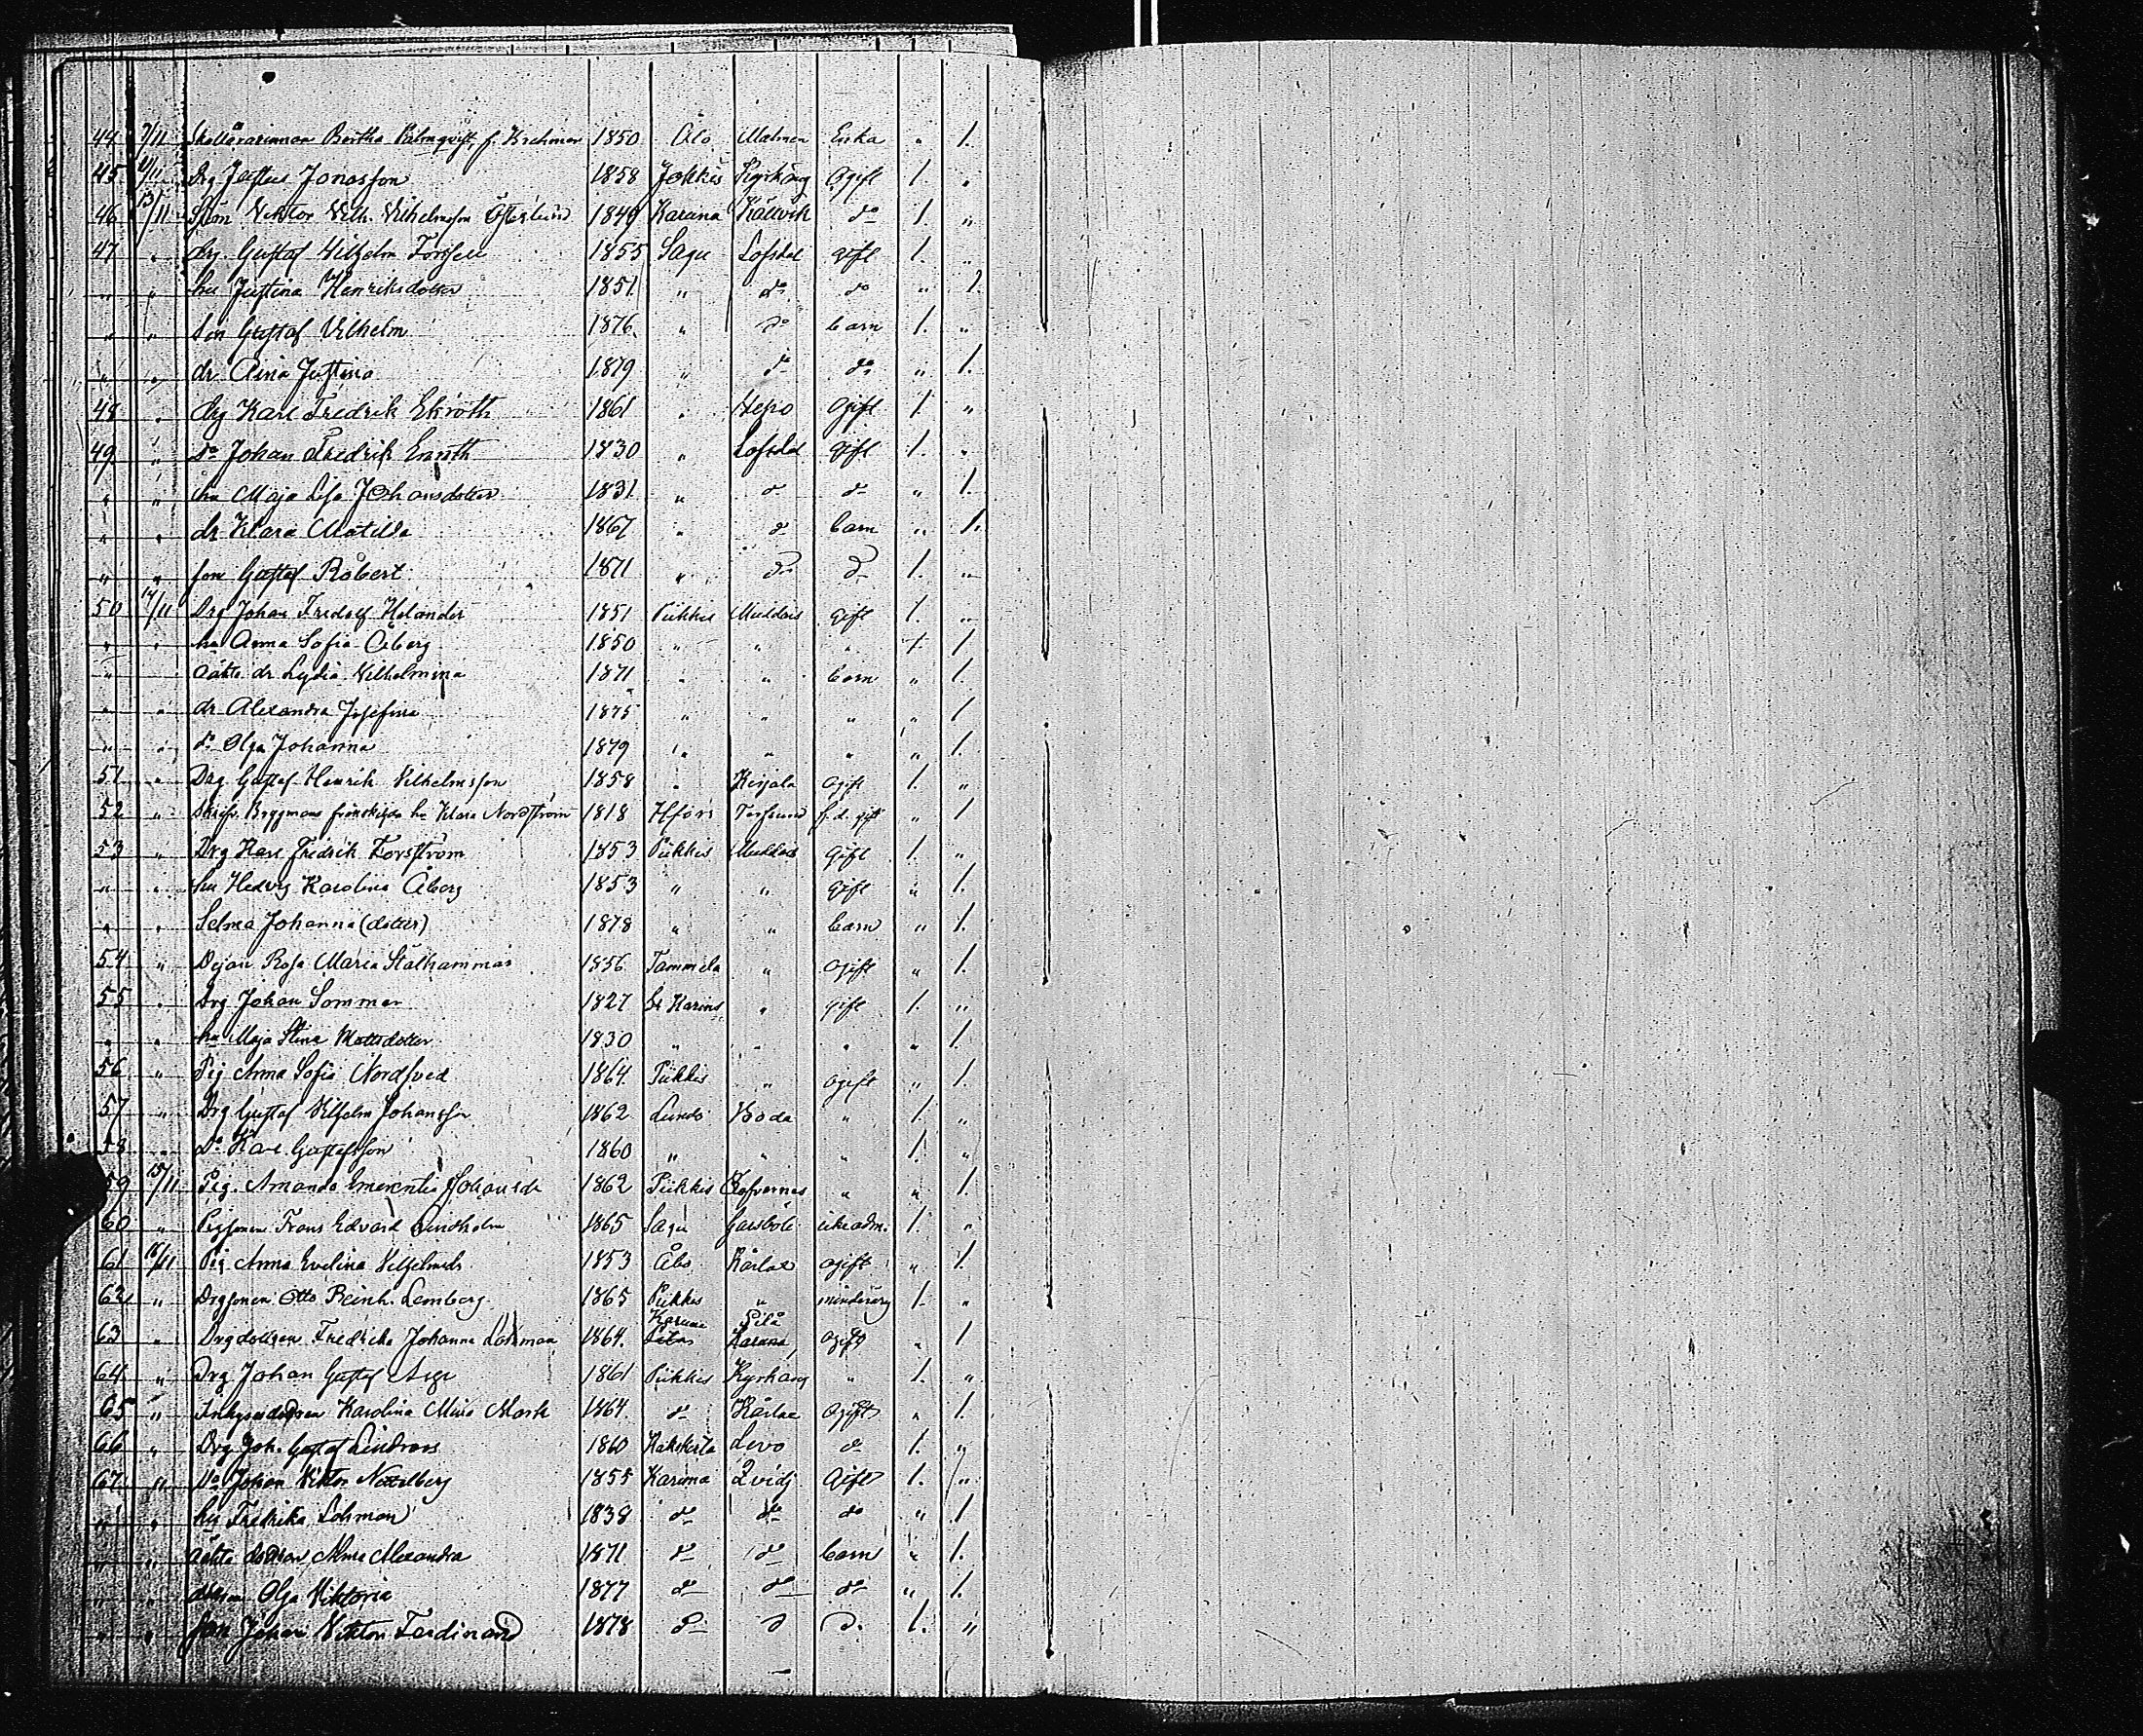 44 7/11 Bertha Palmqvist f. 1850 Åbo Malmen Enka " 1.
45 9/11 Drg Justus Jonasson 1858 Jokkis Kyrkäng Ogift 1. "
46 13/11 Viktor Vilh. Vilhelmsson Österlund 1849 Karuna Källvik do 1. "
47 " drg. Gustaf Vilhelm Forssell 1855 Sagu Lofsdal gift 1. "
" " hu Justina Henriksdotter 1851 " do do " 1.
" " son Gustaf Vilhelm 1876 " do barn 1. "
" " dr Aina Justina 1879 " do do " 1.
48 " drg Karl Fredrik Ekroth 1861 " Hepo Ogift 1. "
49 " Do Johan Fredrik Enroth 1830 " Lofsdal gift 1. "
" " hu Maja Lisa Johansdotter 1831 " do do " 1.
" " dr Klara Matilda 1867 " do barn " 1.
" " son Gustaf Robert 1871 " do do 1. "
50 14/11 Drg Johan Fredolf Helander 1851 Piikkis Muddais gift 1. "
" " hu Anna Sofia Åberg 1850 " " " 1. 1
" äkta dr Lydia Vilhelmina 1871 " " barn " 1.
" " dr Alexandra Josefina 1875 " " " " 1
" " do Olga Johanna 1879 " " " " 1.
51 " Drg Gustaf Henrik Vilhelmsson 1858 " Kirjala Ogift 1. "
52 " Bryggmans frånskilda hu Klara Nordström 1818 Hfors f.d. gift " 1
53 " Drg Karl Fredrik Forsström 1853 Piikkis Muddais Gift 1. "
" " hu Hedvig Karolina Åberg 1853 " " gift " 1.
" " Selma Johanna (dotter) 1878 " " barn " 1.
54 " Dejan Rosa Maria Stålhammar 1856 Tammela " ogift " 1.
55 " Drg Johan Sommar 1827 St Karins " gift 1. "
" " hu Maja Stina Mattsdotter 1830 " " " " 1.
56 " Pig Anna Sofia Nordsved 1864 Piikkis " ogift " 1.
57 " Drg Gustaf Vilhelm Johansson 1862 Lundo Koda " 1. "
58 " Do Karl Gustafsson 1860 " " " 1. "
59 15/11 Pig. Amanda Emerentia Johansdr 1862 Piikkis " " 1.
60 " Pigsonen Frans Edvard Lindholm 1865 Sagu Garsböle 1. "
61 18/11 Pig Anna Evelina Vilhelmsdr 1853 Åbo Kårlax ogift " 1.
62 " Drgsonen Otto Reinh. Lemberg 1865 Piikkis " minderårg 1. "
63 " Drgdottren Fredrika Johanna Lohman 1864 Karuna Pilå Karuna Ogift " 1
64 " Drg Johan Gustaf Arge 1861 Piikkis Kyrkäng " 1. "
65 " Karolina Mina Mark 1864 do Kårlax Ogift " 1.
66 " Drg Joh. Gustaf Lindroos 1860 Kakskerta Levo do 1. "
67 " Do Johan Viktor Nettelberg 1855 Karuna Qvidj Gift 1. "
" " hu Fredrika Lohman 1838 do do do " 1
" " äkta dottren Alma Alexandra 1871 do do barn " 1.
" " dottren Olga Viktoria 1877 do do do " 1.
" " son Johan Viktor Ferdinand 1878 do do do. 1. "